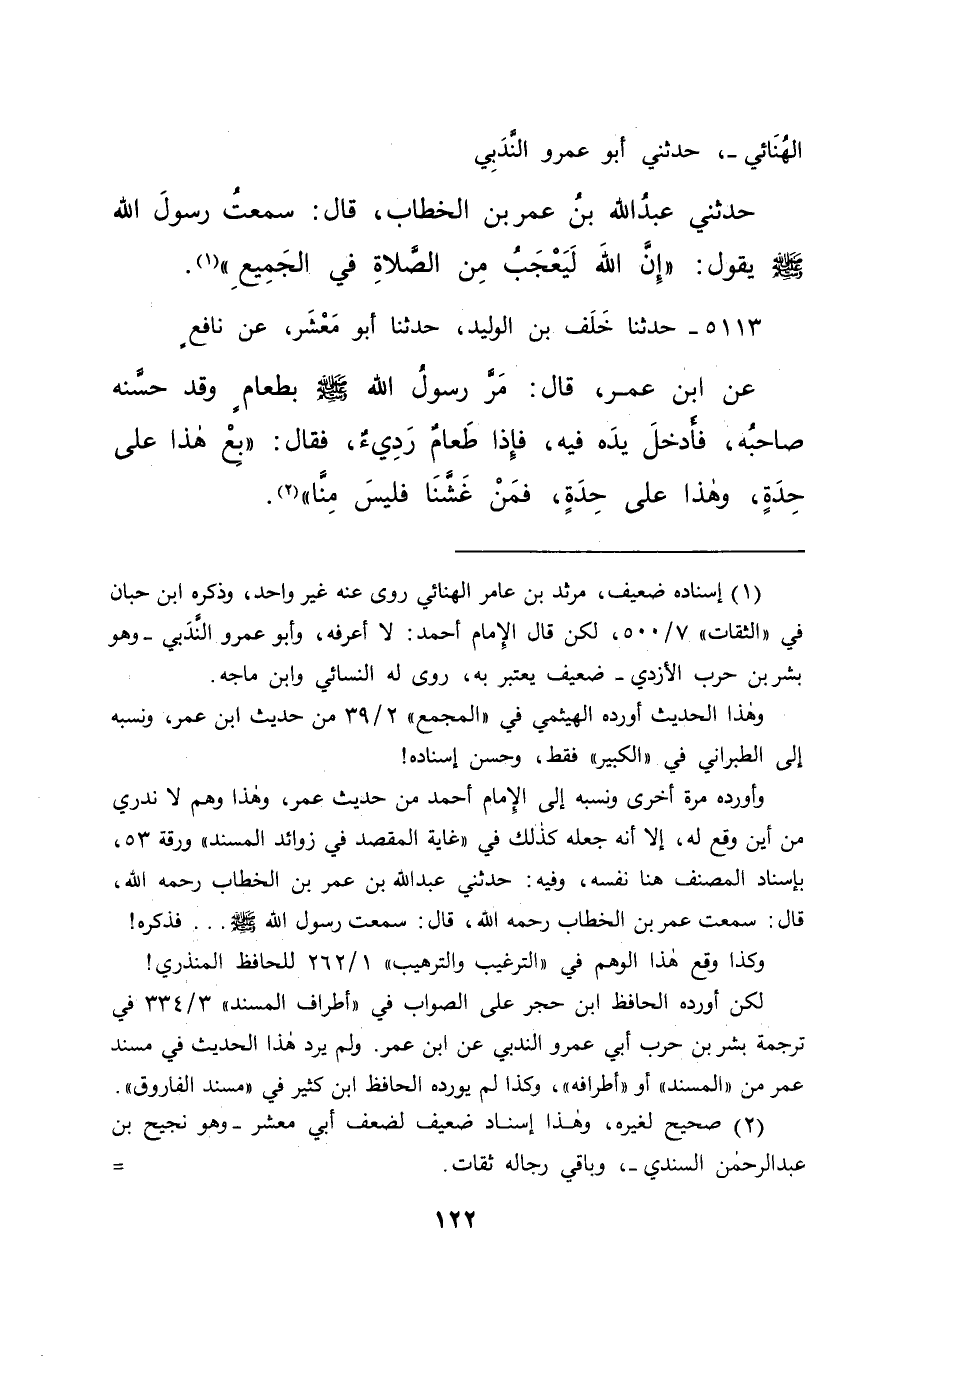 الهُنَائي ـ، حدثني أبو عمرو النَّدَبِي
حدثني عبدُالله بنُ عمر بن الخطاب، قال: سمعتُ رسولَ الله
ﷺ يقول: «إِنَّ اللهَ لَيَعْجَبُ مِن الصَّلاةِ في الجَمِيعِ»(١).
٥١١٣ ـ حدثنا خَلَف بن الوليد، حدثنا أبو مَعْشَر، عن نافعٍ
عن ابن عمـر، قال: مَرَّ رسولُ الله ﷺ بطعامٍ وقد حسَّنه
صاحبُه، فأَدخلَ يدَه فيه، فإِذا طَعامٌ رَدِيءٌ، فقال: «بِعْ هٰذا على
حِدَةٍ، وهٰذا على حِدَةٍ، فمَنْ غَشَّنَا فليسَ مِنَّا»(٢).
(١) إسناده ضعيف، مرثد بن عامر الهنائي روى عنه غير واحد، وذكره ابن حبان
في «الثقات» ٥٠٠/٧، لكن قال الإمام أحمد: لا أعرفه، وأبو عمرو النَّدَبي ـ وهو
بشر بن حرب الأزدي ـ ضعيف يعتبر به، روى له النسائي وابن ماجه.
وهٰذا الحديث أورده الهيثمي في «المجمع» ٣٩/٢ من حديث ابن عمر، ونسبه
إلى الطبراني في «الكبير» فقط، وحسن إسناده!
وأورده مرة أخرى ونسبه إلى الإمام أحمد من حديث عمر، وهٰذا وهم لا ندري
من أين وقع له، إلا أنه جعله كذٰلك في «غاية المقصد في زوائد المسند» ورقة ٥٣،
بإسناد المصنف هنا نفسه، وفيه: حدثني عبدالله بن عمر بن الخطاب رحمه الله،
قال: سمعت عمر بن الخطاب رحمه الله، قال: سمعت رسول الله ﷺ . . . فذكره!
وكذا وقع هٰذا الوهم في «الترغيب والترهيب» ٢٦٢/١ للحافظ المنذري!
لكن أورده الحافظ ابن حجر على الصواب في «أطراف المسند» ٣٣٤/٣ في
ترجمة بشر بن حرب أبي عمرو الندبي عن ابن عمر. ولم يرد هٰذا الحديث في مسند
عمر من «المسند» أو «أطرافه»، وكذا لم يورده الحافظ ابن كثير في «مسند الفاروق».
(٢) صحيح لغيره، وهٰـذا إسنـاد ضعيف لضعف أبي معشر ـ وهو نجيح بن
عبدالرحمٰن السندي ـ، وباقي رجاله ثقات. =
١٢٢